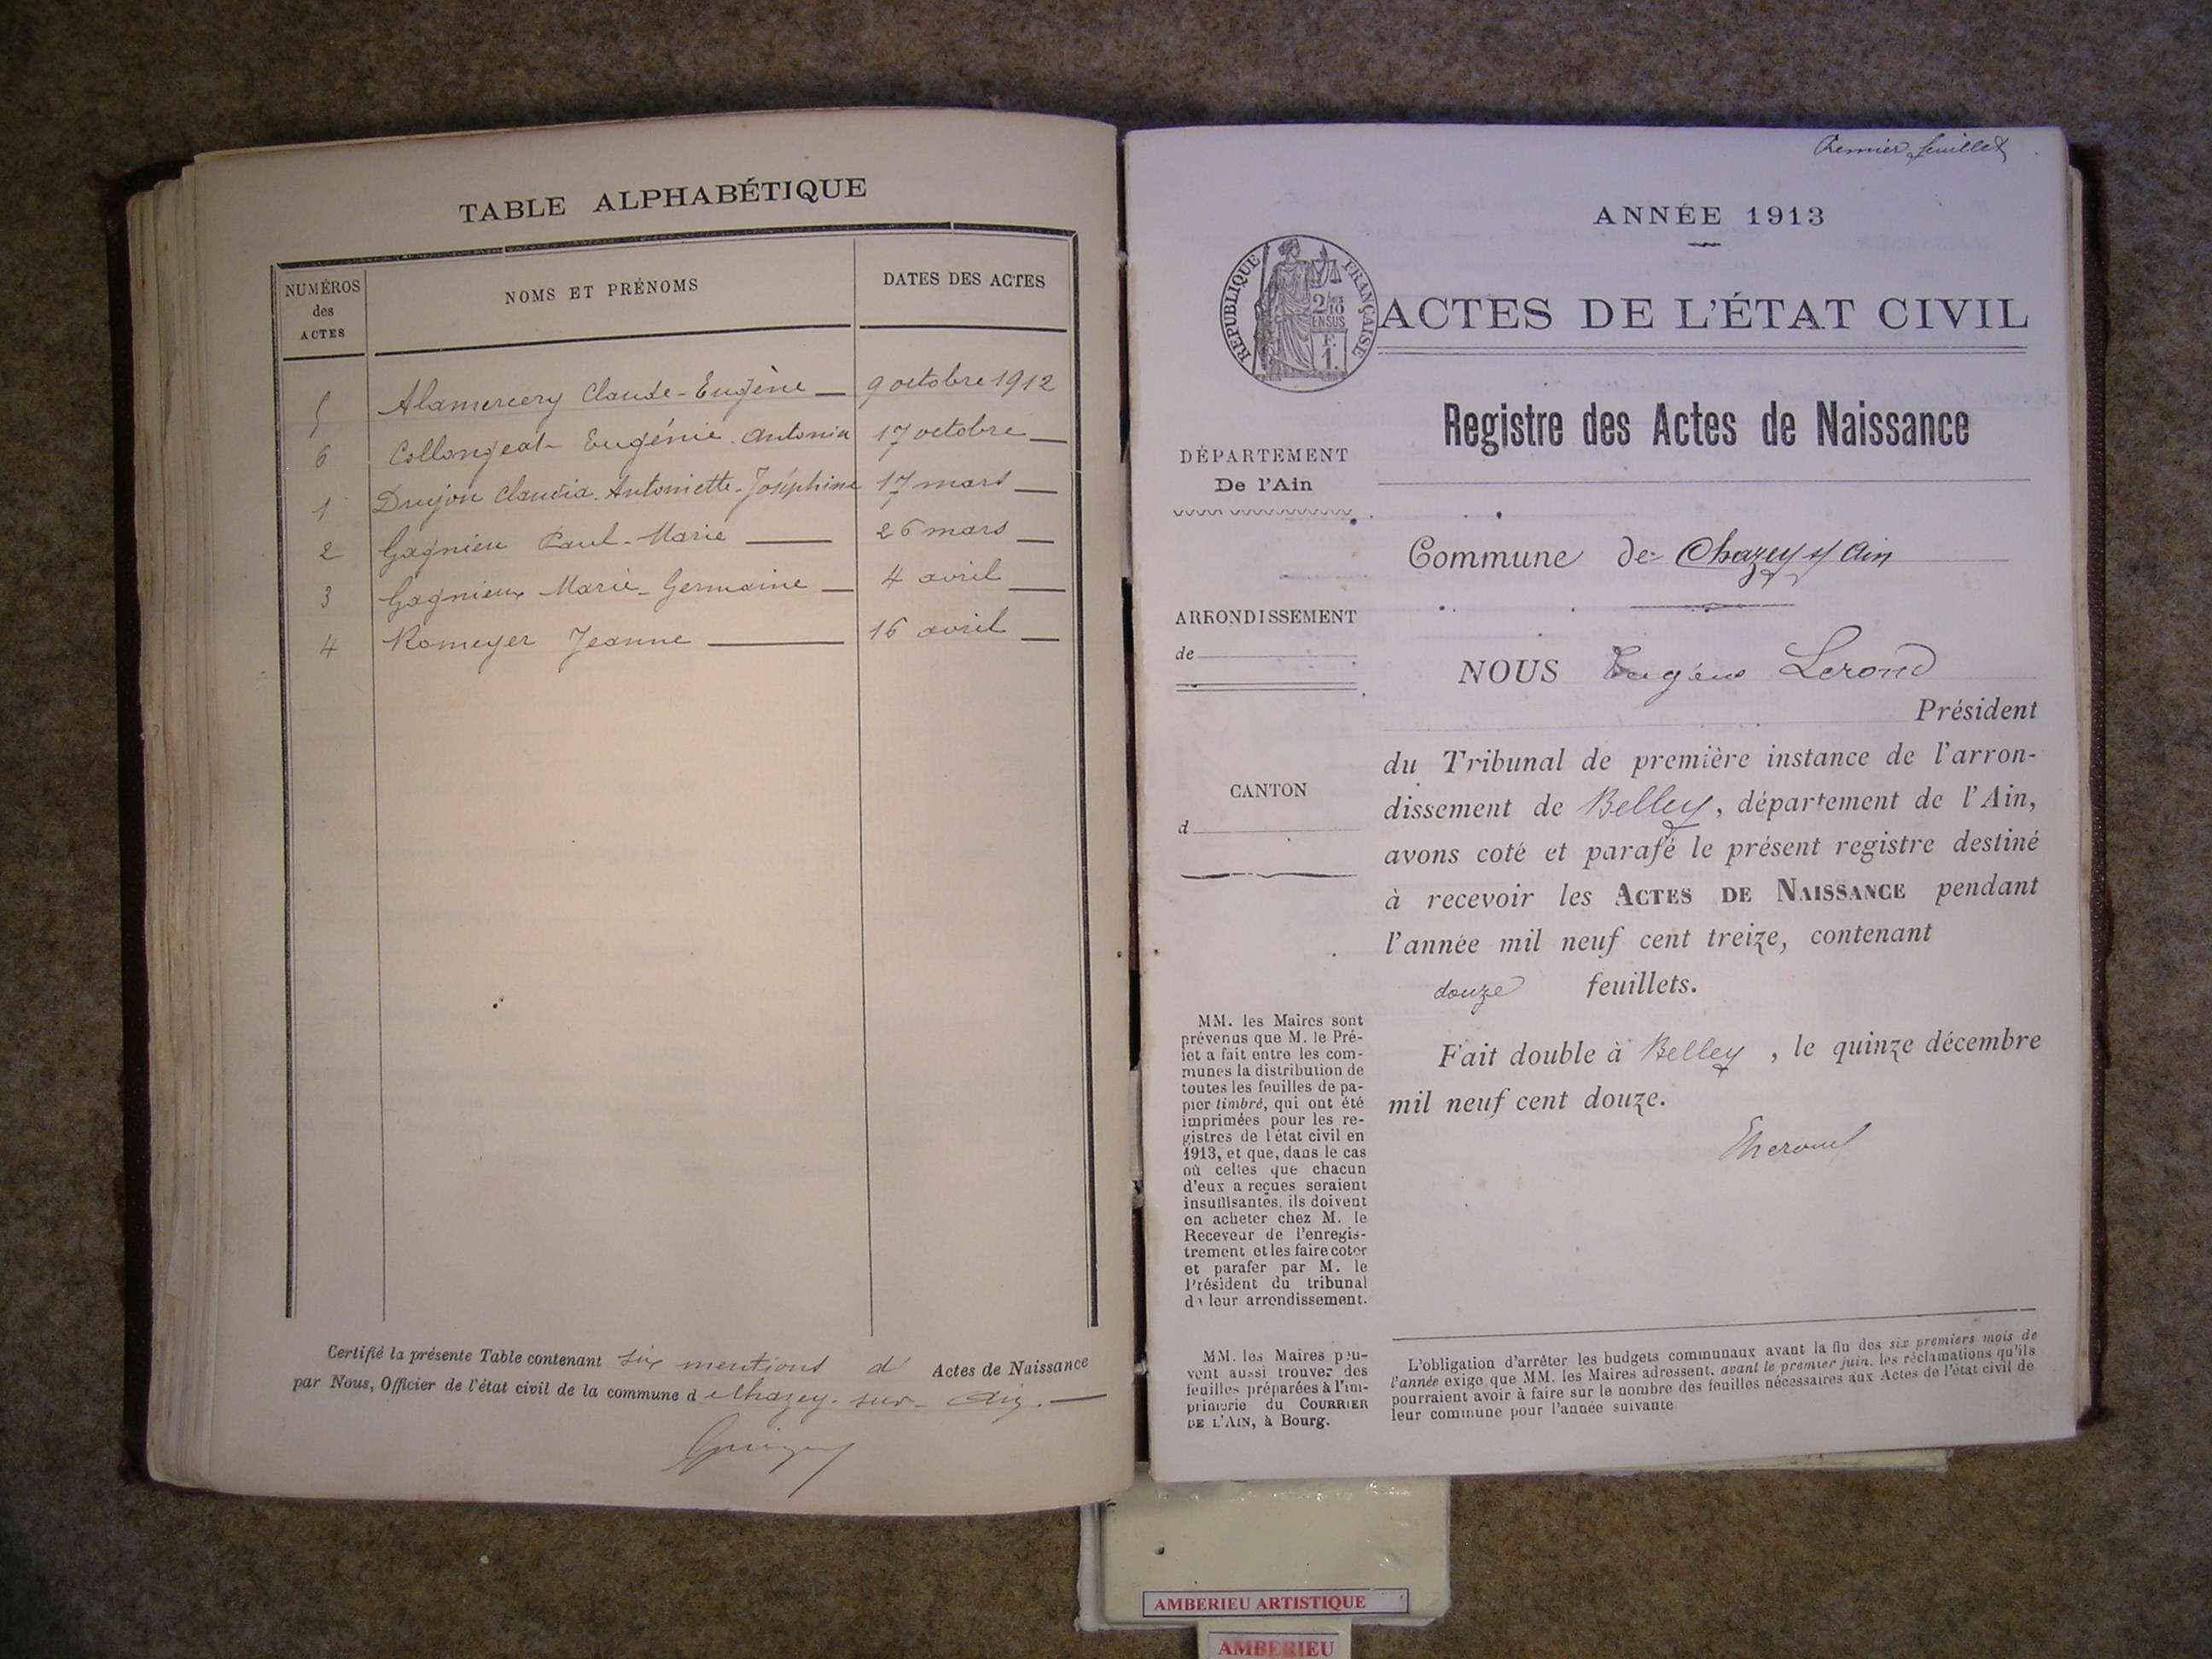 TABLE ALPHABÉTIQUE
NUMÉROS des ACTES
NOMS ET PRÉNOMS
DATES DES ACTES
5 Alamercery Claude-Eugène — 9 octobre 1912
6 Collongeat Eugénie-Antonia 17 octobre —
1 Drujon Claudia-Antoniette-Joséphine 17 mars —
2 Gagnieu Paul-Marie — 26 mars —
3 Gagnieux Marie-Germaine — 4 avril —
4 Romeyer Jeanne — 16 avril —
Certifié la présente Table contenant six mentions d' Actes de Naissance
par Nous, Officier de l'état civil de la commune d e Chazey-sur-Ain. —
Premier feuillet
ANNÉE 1913
RÉPUBLIQUE FRANÇAISE
2/10
EN SUS
F.
1.
ACTES DE L'ÉTAT CIVIL
Registre des Actes de Naissance
DÉPARTEMENT
De l'Ain
Commune de Chazey s/ Ain
ARRONDISSEMENT
de
NOUS Eugène Lerond
Président
CANTON
d
du Tribunal de première instance de l'arron-
dissement de Belley, département de l'Ain,
avons coté et parafé le présent registre destiné
à recevoir les ACTES DE NAISSANCE pendant
l'année mil neuf cent treize, contenant
douze feuillets.
Fait double à Belley, le quinze décembre
mil neuf cent douze.
MM. les Maires sont
prévenus que M. le Pré-
fet a fait entre les com-
munes la distribution de
toutes les feuilles de pa-
pier timbré, qui ont été
imprimées pour les re-
gistres de l'état civil en
1913, et que, dans le cas
où celles que chacun
d'eux a reçues seraient
insuffisantes, ils doivent
en acheter chez M. le
Receveur de l'enregis-
trement et les faire coter
et parafer par M. le
Président du tribunal
de leur arrondissement.
MM. les Maires peu-
vent aussi trouver des
feuilles préparées à l'im-
primerie du COURRIER
DE L'AIN, à Bourg.
L'obligation d'arrêter les budgets communaux avant la fin des six premiers mois de
l'année exige que MM. les Maires adressent, avant le premier juin, les réclamations qu'ils
pourraient avoir à faire sur le nombre des feuilles nécessaires aux Actes de l'état civil de
leur commune pour l'année suivante
AMBERIEU ARTISTIQUE
AMBERIEU